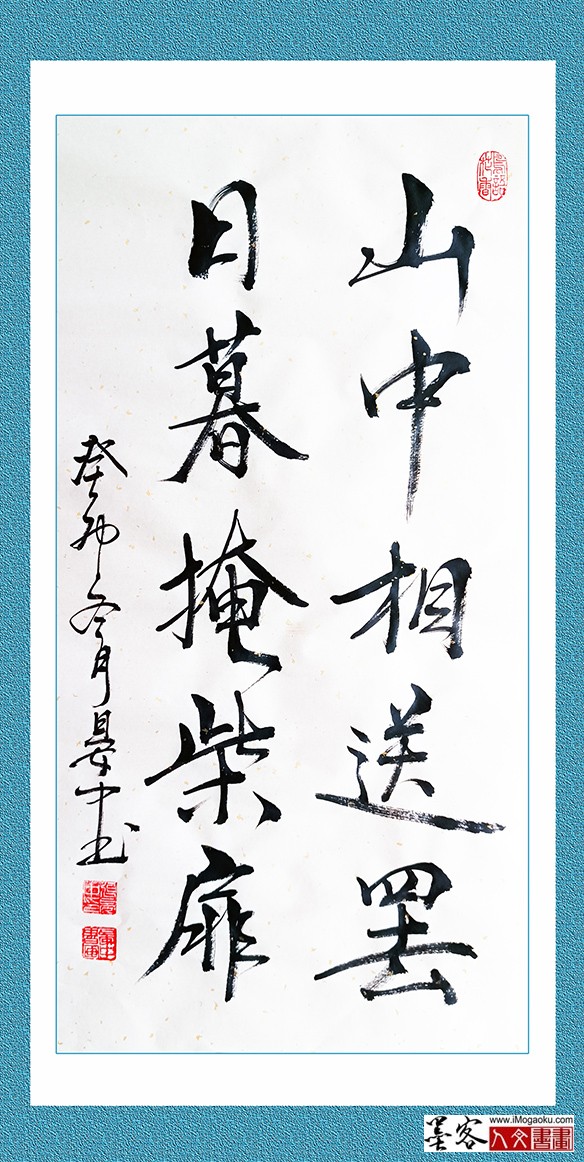 山中相送罢
日暮掩柴扉
癸卯冬月晏中书
墨客
www.iMogaoku.com
人文書畫